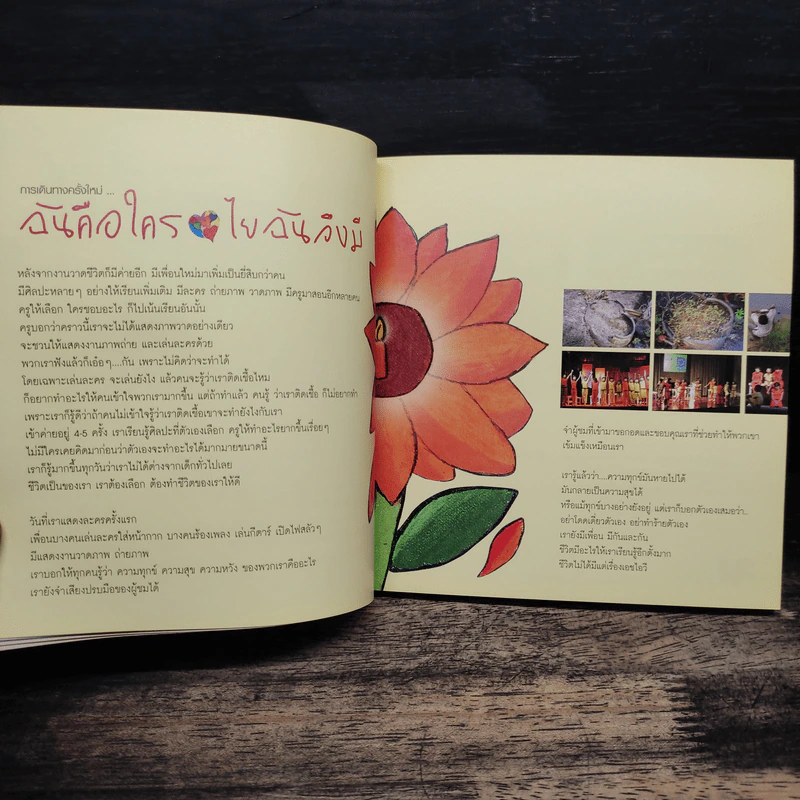 การเดินทางครั้งใหม่ ...
ฉันคือใคร ไยฉันจึงมี
หลังจากงานวาดชีวิตก็มีค่ายอีก มีเพื่อนใหม่มาเพิ่มเป็นยี่สิบกว่าคน
มีศิลปะหลายๆ อย่างให้เรียนเพิ่มเติม มีละคร ถ่ายภาพ วาดภาพ มีครูมาสอนอีกหลายคน
ครูให้เลือก ใครชอบอะไร ก็ไปเน้นเรียนอันนั้น
ครูบอกว่าคราวนี้เราจะไม่ได้แสดงภาพวาดอย่างเดียว
จะชวนให้แสดงงานภาพถ่าย และเล่นละครด้วย
พวกเราฟังแล้วก็เอ๋อๆ....กัน เพราะไม่คิดว่าจะทำได้
โดยเฉพาะเล่นละคร จะเล่นยังไง แล้วคนจะรู้ว่าเราติดเชื้อไหม
ก็อยากทำอะไรให้คนเข้าใจพวกเรามากขึ้น แต่ถ้าทำแล้ว คนรู้ ว่าเราติดเชื้อ ก็ไม่อยากทำ
เพราะเราก็รู้ดีว่าถ้าคนไม่เข้าใจรู้ว่าเราติดเชื้อเขาจะทำยังไงกับเรา
เข้าค่ายอยู่ 4-5 ครั้ง เราเรียนรู้ศิลปะที่ตัวเองเลือก ครูให้ทำอะไรยากขึ้นเรื่อยๆ
ไม่มีใครเคยคิดมาก่อนว่าตัวเองจะทำอะไรได้มากมายขนาดนี้
เราก็รู้มากขึ้นทุกวันว่าเราไม่ได้ต่างจากเด็กทั่วไปเลย
ชีวิตเป็นของเรา เราต้องเลือก ต้องทำชีวิตของเราให้ดี
วันที่เราแสดงละครครั้งแรก
เพื่อนบางคนเล่นละครใส่หน้ากาก บางคนร้องเพลง เล่นกีตาร์ เปิดไฟสลัวๆ
มีแสดงงานวาดภาพ ถ่ายภาพ
เราบอกให้ทุกคนรู้ว่า ความทุกข์ ความสุข ความหวัง ของพวกเราคืออะไร
เรายังจำเสียงปรบมือของผู้ชมได้
จำผู้ชมที่เข้ามาขอกอดและขอบคุณเราที่ช่วยทำให้พวกเขา
เข้มแข็งเหมือนเรา
เรารู้แล้วว่า....ความทุกข์มันหายไปได้
มันกลายเป็นความสุขได้
หรือแม้ทุกข์บางอย่างยังอยู่ แต่เราก็บอกตัวเองเสมอว่า..
อย่าโดดเดี่ยวตัวเอง อย่าทำร้ายตัวเอง
เรายังมีเพื่อน มีกันและกัน
ชีวิตมีอะไรให้เราเรียนรู้อีกตั้งมาก
ชีวิตไม่ได้มีแต่เรื่องเอชไอวี